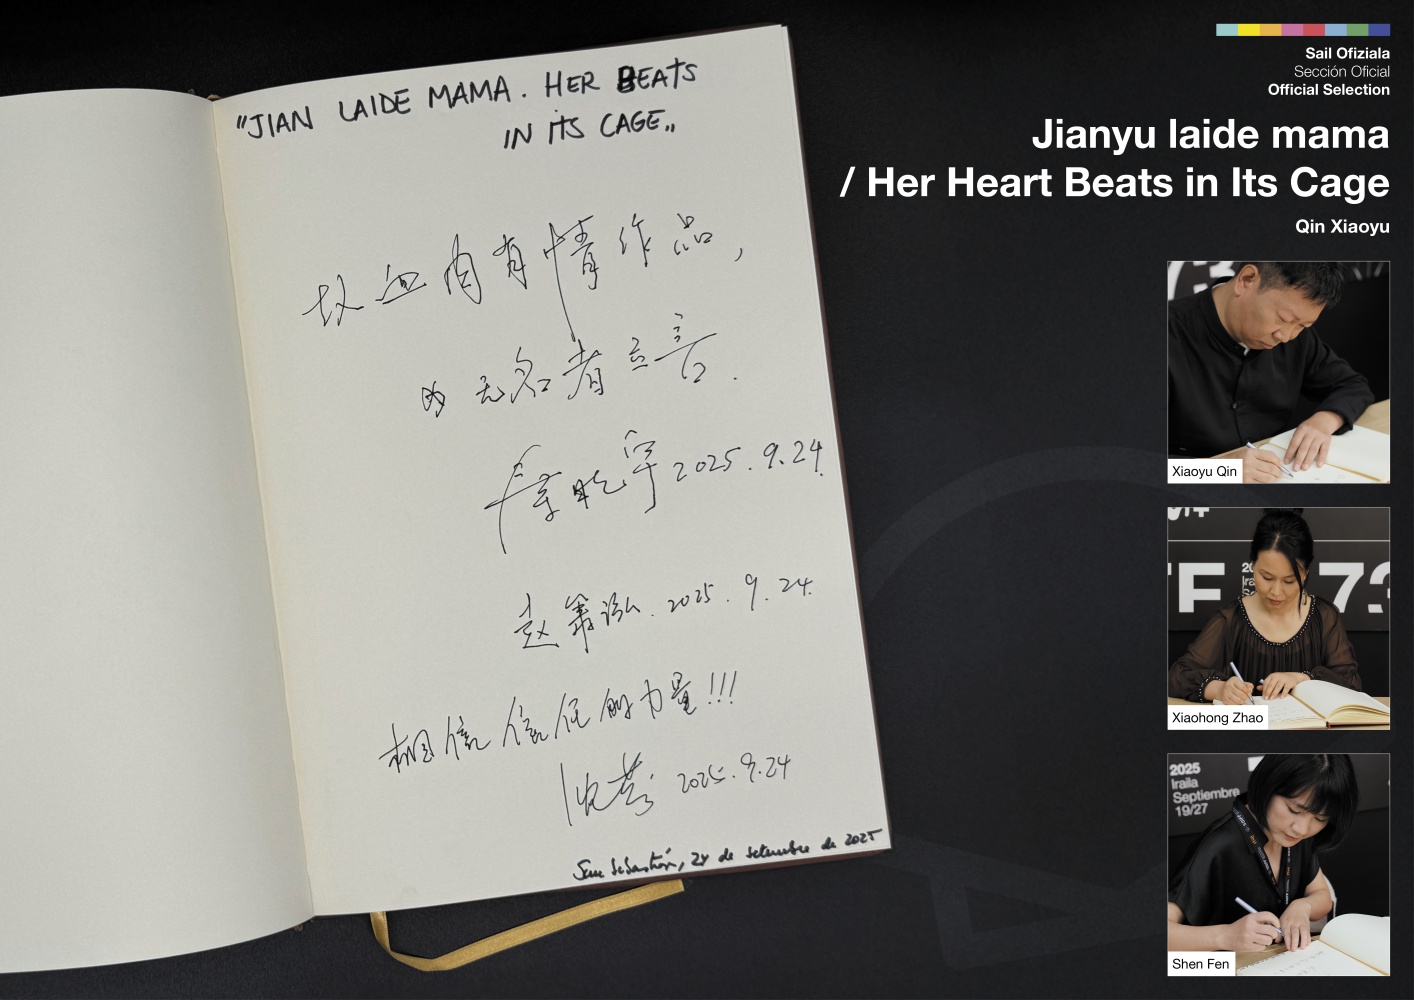 "JIAN LAIDE MAMA. HER BEATS
IN ITS CAGE"
故血肉有情作品,
为无名者立言.
秦晓宇 2025.9.24
赵箫泓. 2025.9.24.
相信信任的力量!!!
2025.9.24
San Sebastián, 24 de setembre de 2025
Sail Ofiziala
Sección Oficial
Official Selection
Jianyu laide mama
/ Her Heart Beats in Its Cage
Qin Xiaoyu
Xiaoyu Qin
Xiaohong Zhao
2025
Iraila
Septiembre
19/27
Shen Fen